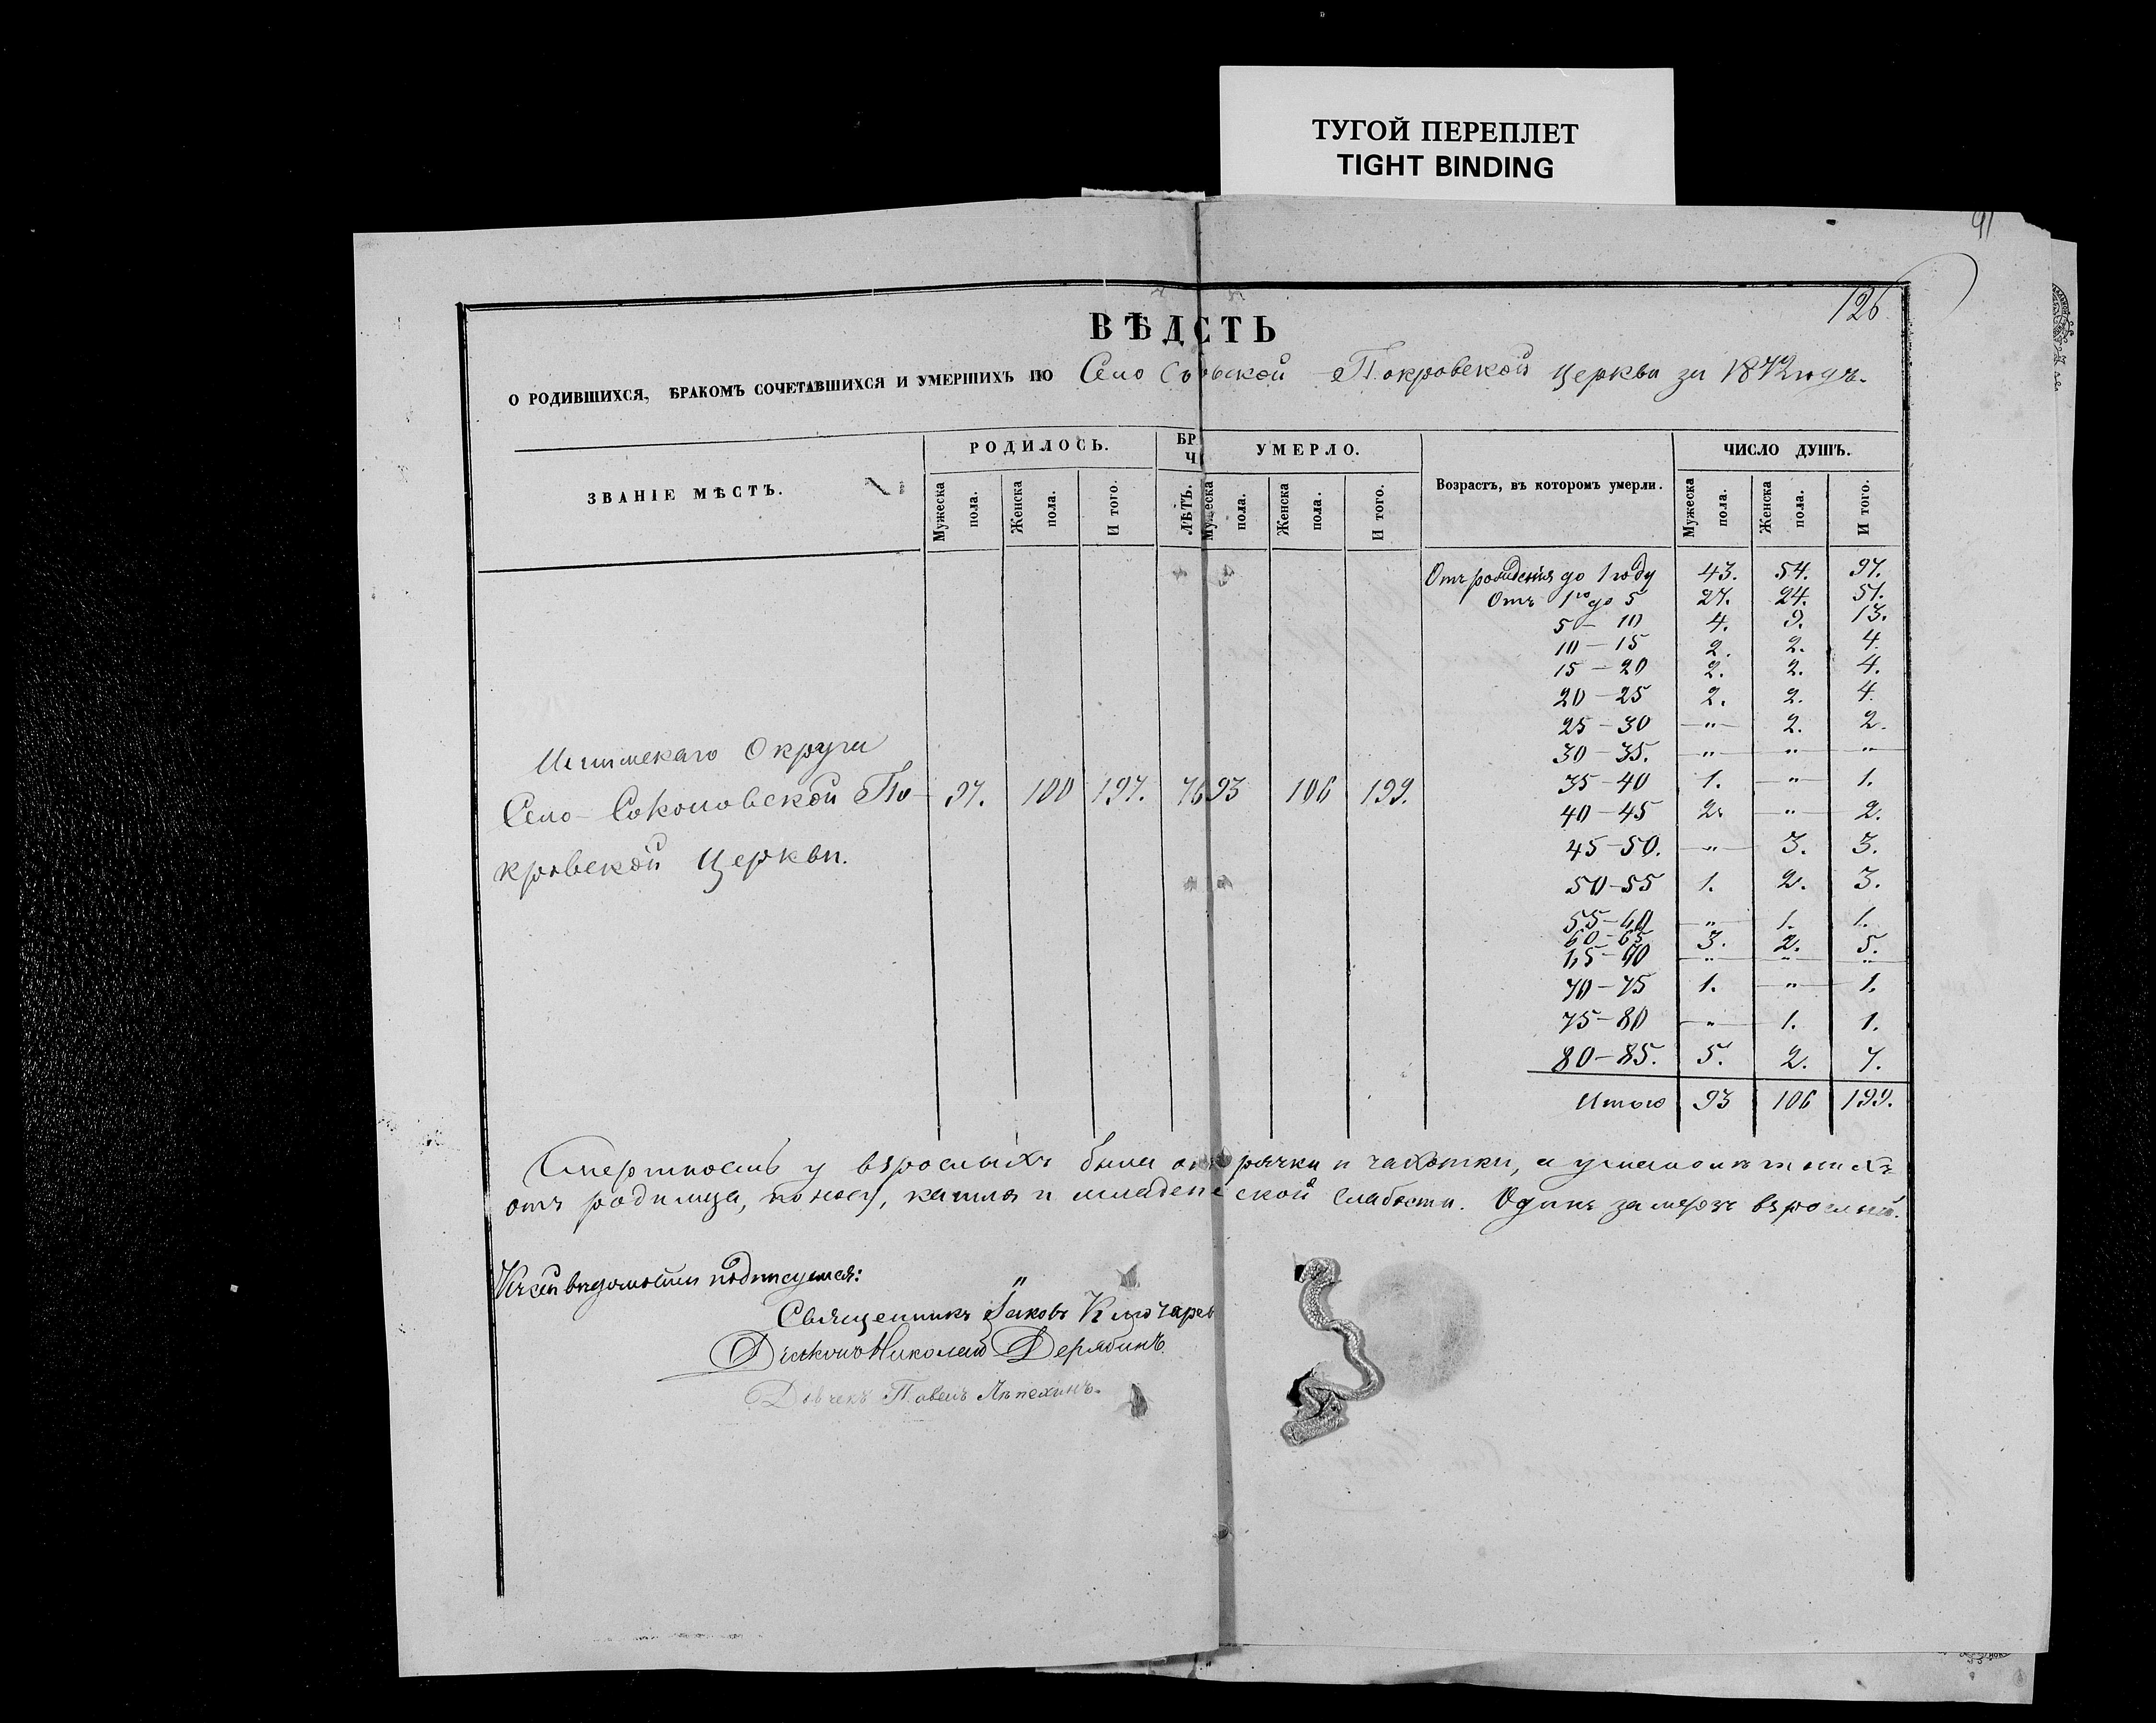 ТУГОЙ ПЕРЕПЛЕТ
TIGHT BINDING
91
126
ВѢДСТЬ
О РОДИВШИХСЯ, БРАКОМЪ СОЧЕТАВШИХСЯ И УМЕРШИХЪ ПО Село Со вской Покровской церкви за 1872 годъ.
ЗВАНІЕ МѢСТЪ.
РОДИЛОСЬ.
Мужеска пола.
Женска пола.
И того.
БР
Ч
ЛѢТЪ.
УМЕРЛО.
Мужеска пола.
Женска пола.
И того.
Возрастъ, въ которомъ умерли.
ЧИСЛО ДУШЪ.
Мужеска пола.
Женска пола.
И того.
Ишимскаго Округа
Село-Соколовской По- 97. 100 197. 76 93 106 199.
кровской Церкви.
Отъ рожденія до 1 году 43. 54. 97.
Отъ 1го до 5 27. 24. 51.
5 – 10 4. 9. 13.
10 – 15 2. 2. 4.
15 – 20 2. 2. 4.
20 – 25 2. 2. 4.
25 – 30 „ 2. 2.
30 – 35. „ „ „
35 – 40 1. „ 1.
40 – 45 2. „ 2.
45 – 50. „ 3. 3.
50 – 55 1. 2. 3.
55 – 60 „ 1. 1.
60 – 65 3. 2. 5.
65 – 70 „ „ „
70 – 75 1. „ 1.
75 – 80 „ 1. 1.
80 – 85. 5. 2. 7.
Итого 93 106 199.
Смертность у взрослыхъ была от горячки и чахотки, а у малолѣтнихъ
отъ родимца, поносу, кашля и младенческой слабости. Одинъ замерзъ взрослый.
Къ сей вѣдомости подписуемся:
Священникъ Іаковъ Ключарев
Діаконъ Николай Дерябинъ.
Дьячекъ Павелъ Лѣпехинъ.